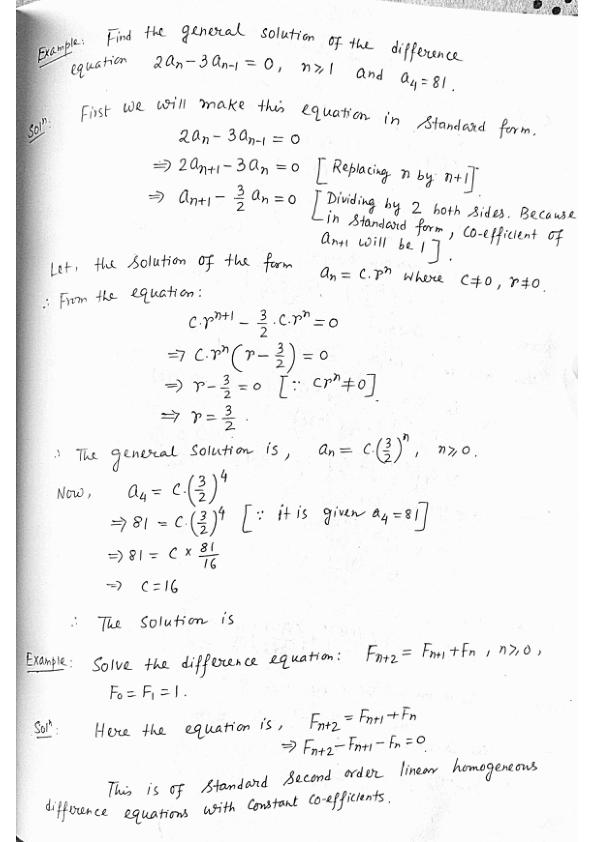 Example: Find the general solution of the difference
equation 2aₙ - 3aₙ₋₁ = 0, n ≥ 1 and a₄ = 81.
Solⁿ: First we will make this equation in standard form.
2aₙ - 3aₙ₋₁ = 0
⇒ 2aₙ₊₁ - 3aₙ = 0 [Replacing n by n+1]
⇒ aₙ₊₁ - 3/2 aₙ = 0 [Dividing by 2 both sides. Because
in standard form, co-efficient of
aₙ₊₁ will be 1].
Let, the solution of the form aₙ = c.rⁿ where c≠0, r≠0.
∴ From the equation:
c.rⁿ⁺¹ - 3/2 .c.rⁿ = 0
⇒ c.rⁿ(r - 3/2) = 0
⇒ r - 3/2 = 0 [∵ crⁿ ≠ 0]
⇒ r = 3/2 .
∴ The general solution is, aₙ = c.(3/2)ⁿ, n ≥ 0.
Now, a₄ = c.(3/2)⁴
⇒ 81 = c.(3/2)⁴ [∵ it is given a₄ = 81]
⇒ 81 = c × 81/16
⇒ c = 16
∴ The solution is
Example: Solve the difference equation: Fₙ₊₂ = Fₙ₊₁ + Fₙ , n ≥ 0,
F₀ = F₁ = 1.
Solⁿ: Here the equation is, Fₙ₊₂ = Fₙ₊₁ + Fₙ
⇒ Fₙ₊₂ - Fₙ₊₁ - Fₙ = 0.
This is of standard second order linear homogeneous
difference equations with constant co-efficients.